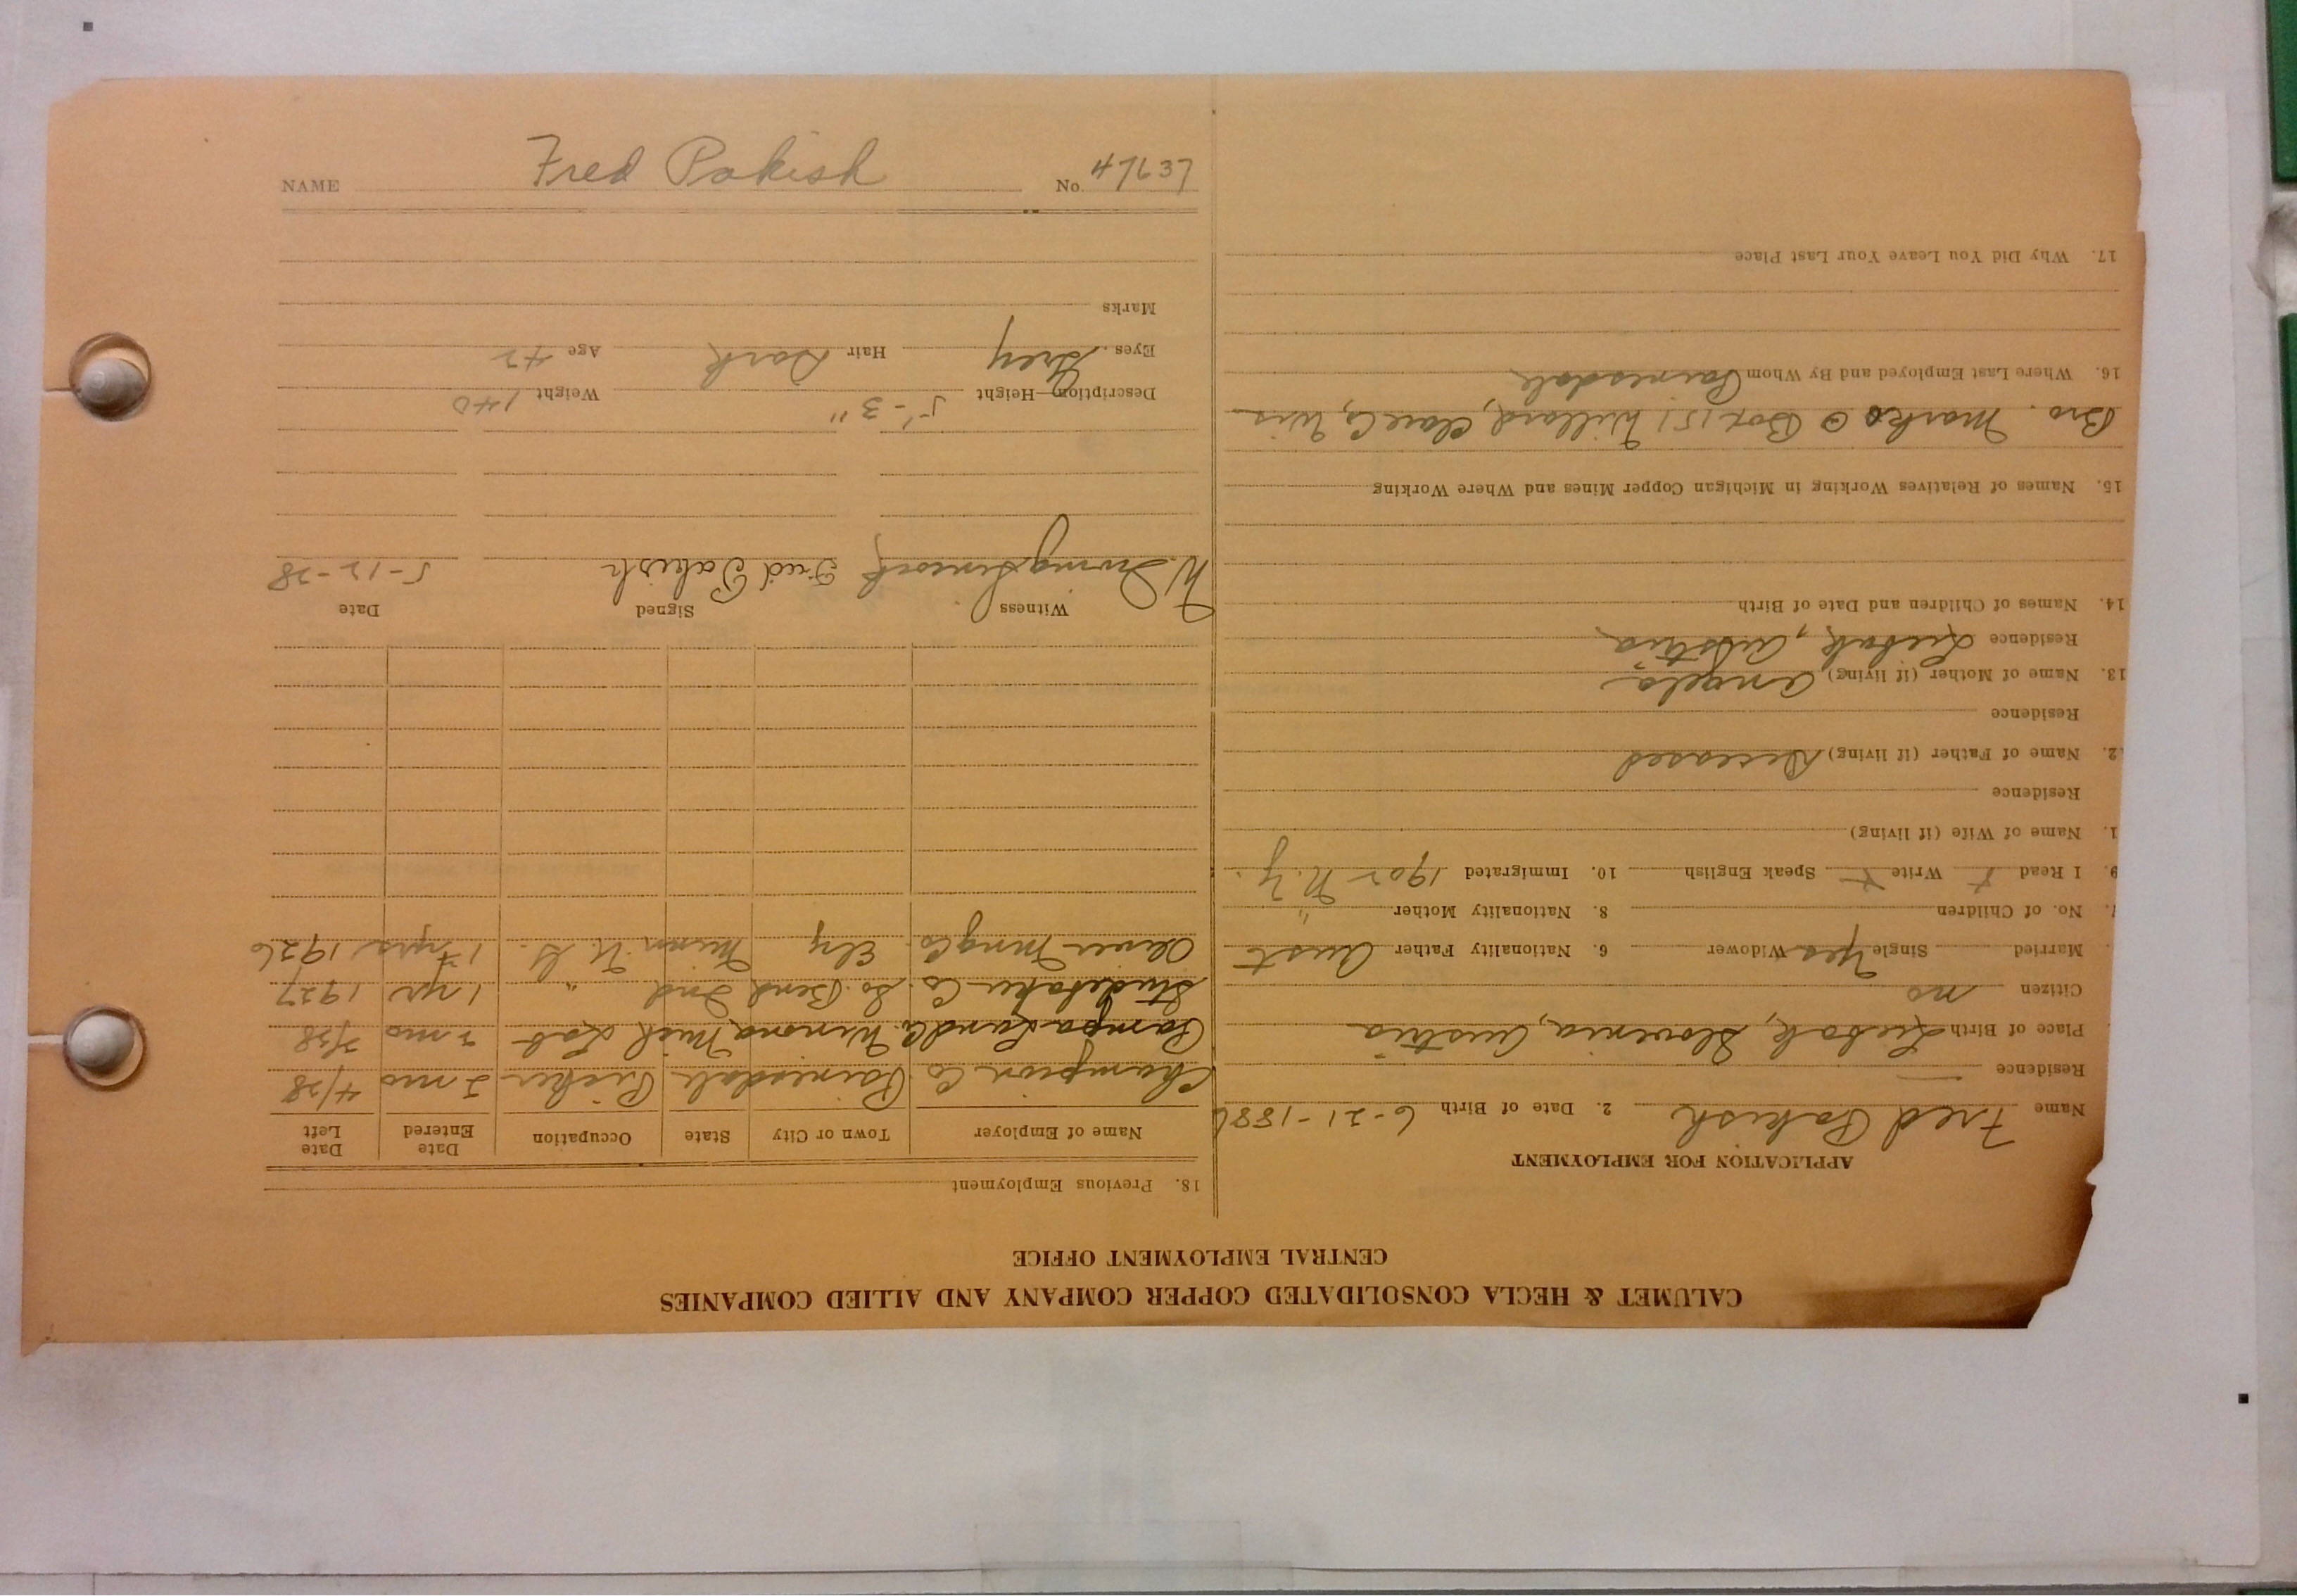 CALUMET & HECLA CONSOLIDATED COPPER COMPANY AND ALLIED COMPANIES
CENTRAL EMPLOYMENT OFFICE
APPLICATION FOR EMPLOYMENT
Name Fred Pakish 2. Date of Birth 6-21-1886
Residence
Place of Birth Austria
Citizen no
Married Single Yes Widower 6. Nationality Father Aust
7. No. of Children 8. Nationality Mother "
9. I Read Write Speak English 10. Immigrated 1902 N.Y.
1. Name of Wife (if living)
Residence
2. Name of Father (if living) Deceased
Residence
13. Name of Mother (if living) Angela
Residence Austria
14. Names of Children and Date of Birth
15. Names of Relatives Working in Michigan Copper Mines and Where Working
Bro. Marko Box 151 Willard, Clark Co, Wis
16. Where Last Employed and By Whom Painesdale
17. Why Did You Leave Your Last Place
18. Previous Employment
Name of Employer Town or City State Occupation Date Entered Date Left
Champion Co. Painesdale 2 mo 4/28
Land Co. Winona Mich Lab 2 mo 2/28
Studebaker Co. So. Bend Ind " 1 yr 1927
Oliver Mng Co. Ely Minn U.G. 17 yrs 1926
Witness Signed Date
W. Irving Fred Pakish 5-12-28
Description—Height 5'-3" Weight 140
Eyes Grey Hair Dark Age 42
Marks
NAME Fred Pakish No. 47637